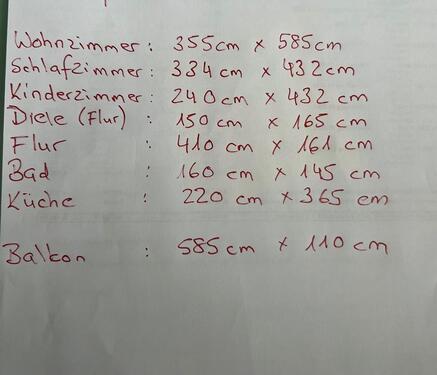 Wohnzimmer: 355cm x 585cm
Schlafzimmer: 334cm x 432cm
Kinderzimmer: 240cm x 432cm
Diele (Flur) : 150cm x 165cm
Flur : 410cm x 161cm
Bad : 160cm x 145cm
Küche : 220 cm x 365 cm
Balkon : 585cm x 110cm